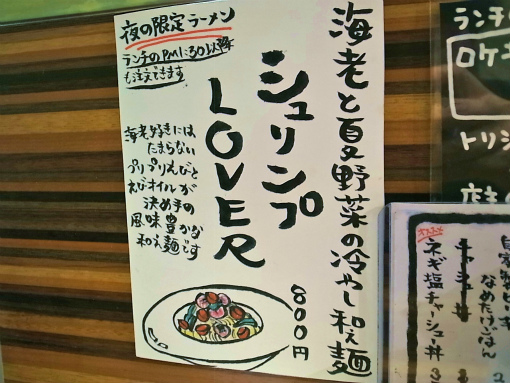 海老と夏野菜の冷やし和え麺
シュリンプ
LOVER
夜の限定ラーメン
ランチのPM1:30以降
も注文できます
海老好きには
たまらない
プリプリえびと
えびオイルが
決め手の
風味豊かな
和え麺です
800円
ランチの
ロケ
トリ
自家製
なめたけごはん
チャーシュー丼
オススメ
ネギ塩チャーシュー丼